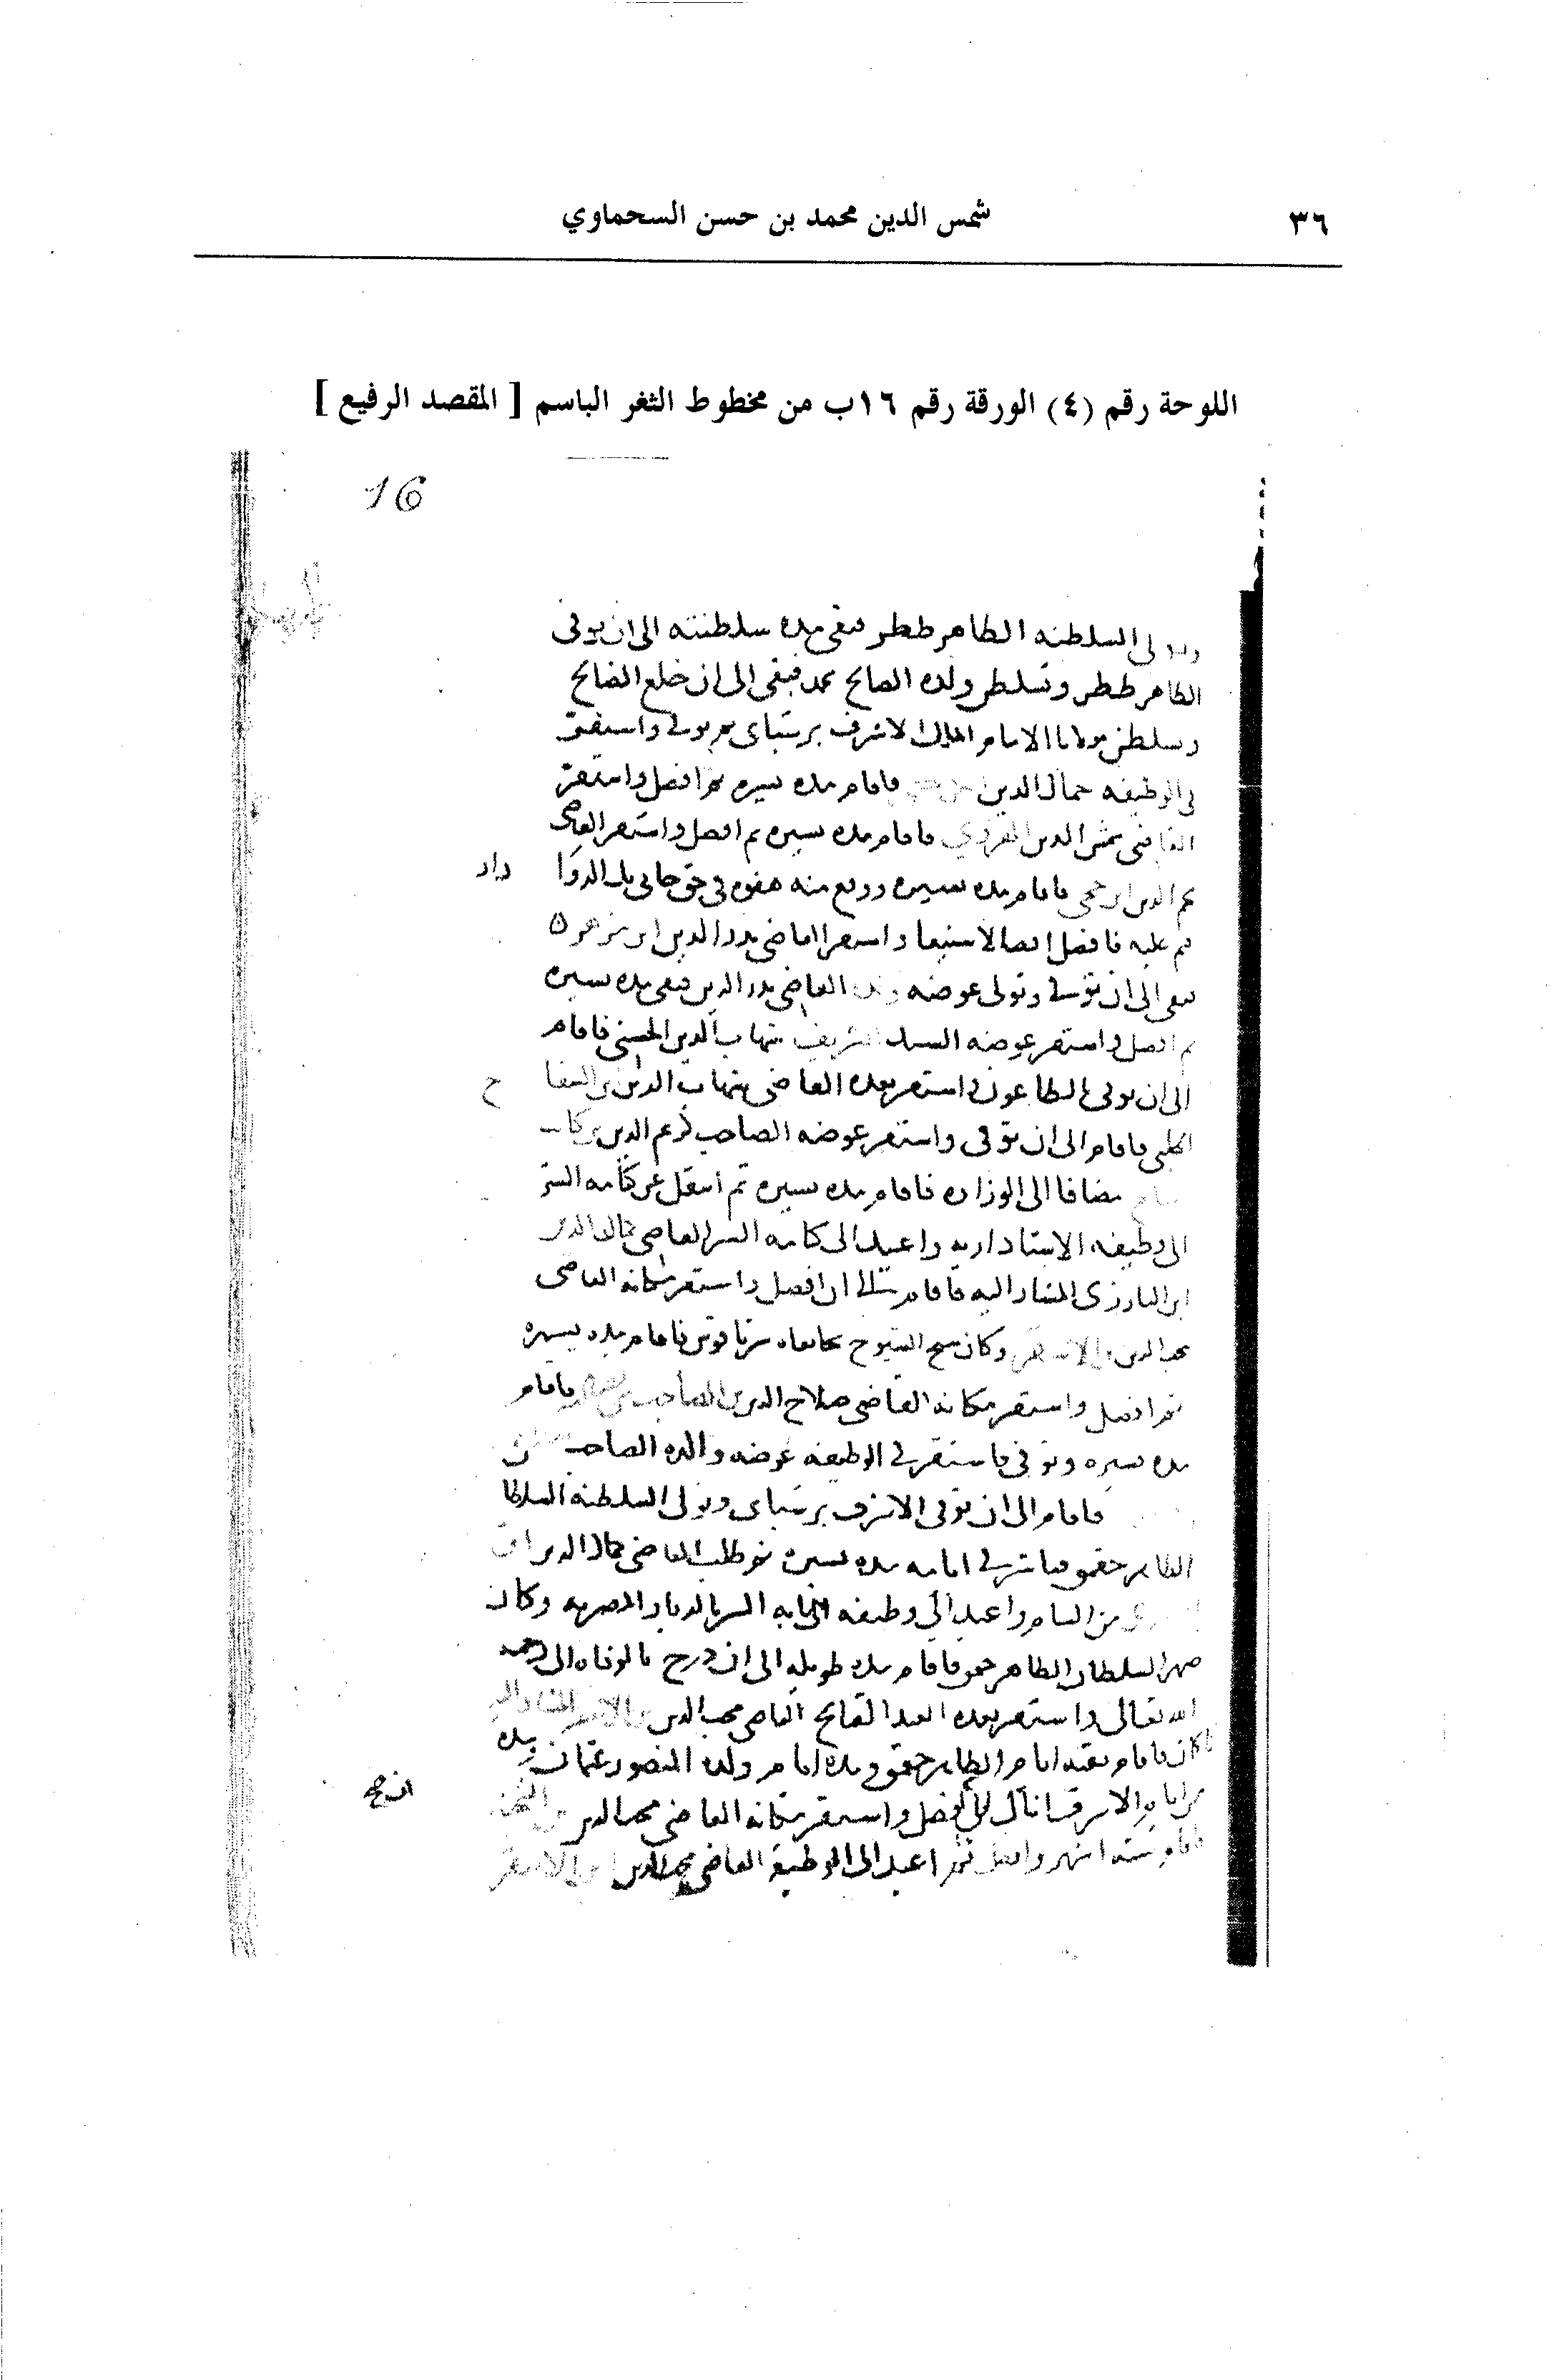 ٣٦
شمس الدين محمد بن حسن السحماوي
اللوحة رقم (٤) الورقة رقم ١٦ب من مخطوط الثغر الباسم [ المقصد الرفيع ]
16
السلطنه الظاهر ططر فبقى مده سلطنته الى ان توفى
الظاهر ططر وتسلطن ولده الصالح محمد فبقى الى ان خلع الصالح
وسلطن مولانا الامام الملك الاشرف برسباى واستقر
فى الوظيفه جمال الدين فاقام مده يسيره ثم انفصل واستقر
القاضى شمس الدين الهروي فاقام مده يسيره ثم انفصل واستقر القاضى
نجم الدين ابن حجى فاقام مده يسيره ووقع منه هفوه فى حق جانى بك الدوا دار
عليه فانفصل ايضا واستقر القاضى بدر الدين ابن مزهر
فبقى الى ان توفى وتولى عوضه ولده القاضى بدر الدين فبقى مده يسيره
ثم انفصل واستقر عوضه السيد الشريف شهاب الدين الحسنى فاقام
الى ان توفى بالطاعون واستقر بعده القاضى شهاب الدين بن السفا ح
الحلبى فاقام الى ان توفى واستقر عوضه الصاحب كريم الدين
مضافا الى الوزاره فاقام مده يسيره ثم انتقل عن كتابه السر
الى وظيفه الاستاداريه واعيد الى كتابه السر القاضى كمال الدين
ابن البارزى المشار اليه فاقام الى ان انفصل واستقر مكانه القاضى
محب الدين بن الاشقر وكان شيخ الشيوخ بخانقاه سرياقوس فاقام مده يسيره
ثم انفصل واستقر مكانه القاضى صلاح الدين بن الصاحب فاقام
مده يسيره وتوفى فاستقر فى الوظيفه عوضه والده الصاحب
فاقام الى ان توفى الاشرف برسباى وتولى السلطنه السلطا
الظاهر جقمق فباشر فى ايامه مده يسيره ثم طلب القاضى كمال الدين
من الشام واعيد الى وظيفه كتابه السر بالديار المصريه وكان
صهر السلطان الظاهر جقمق فاقام مده طويله الى ان درج بالوفاه الى رحمه
الله تعالى واستقر بعده العبد الصالح القاضى محب الدين بن الاشقر المشار اليه
فاقام بقيه ايام الظاهر جقمق ومده ايام ولده المنصور عثمان ومده
من ايام الاشرف اينال انفصل واستقر مكانه القاضى محب الدين بن الشحنه
سته اشهر وانفصل ثم اعيد الى الوظيفه القاضى محب الدين ابن الاشقر